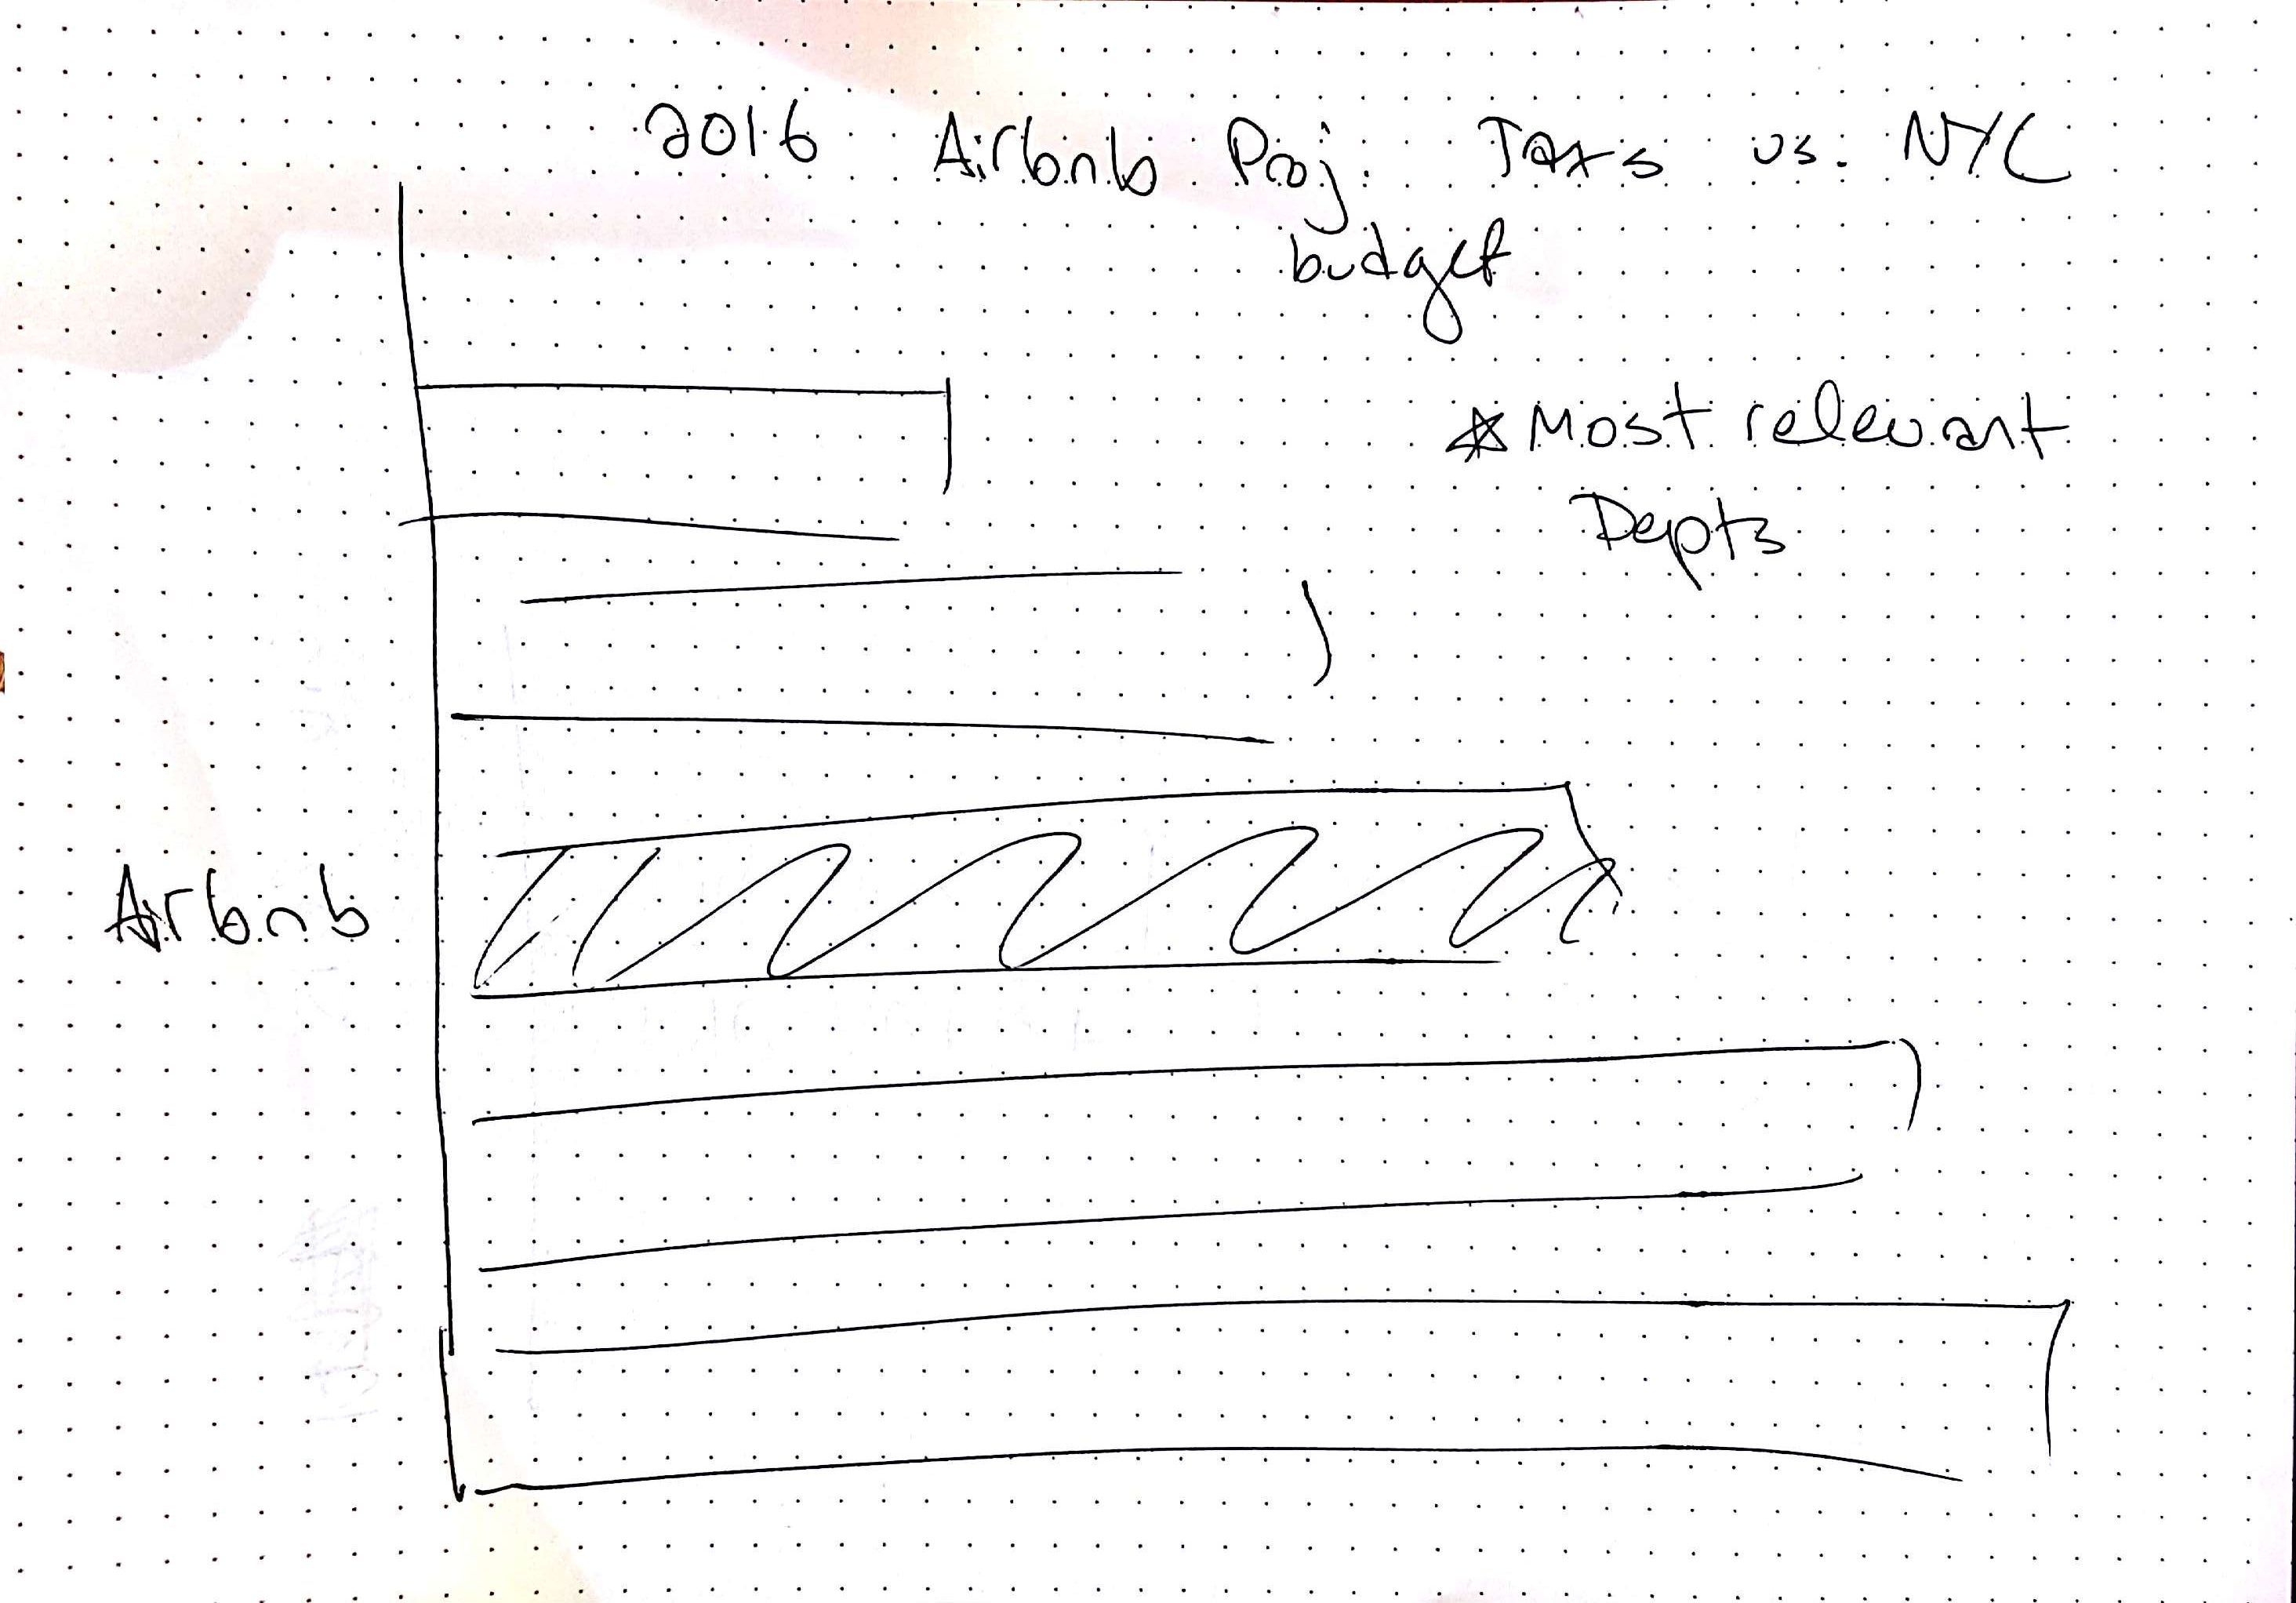 2016 Airbnb Proj. Taxs vs. NYC
budget
* Most relevant
Depts
Airbnb